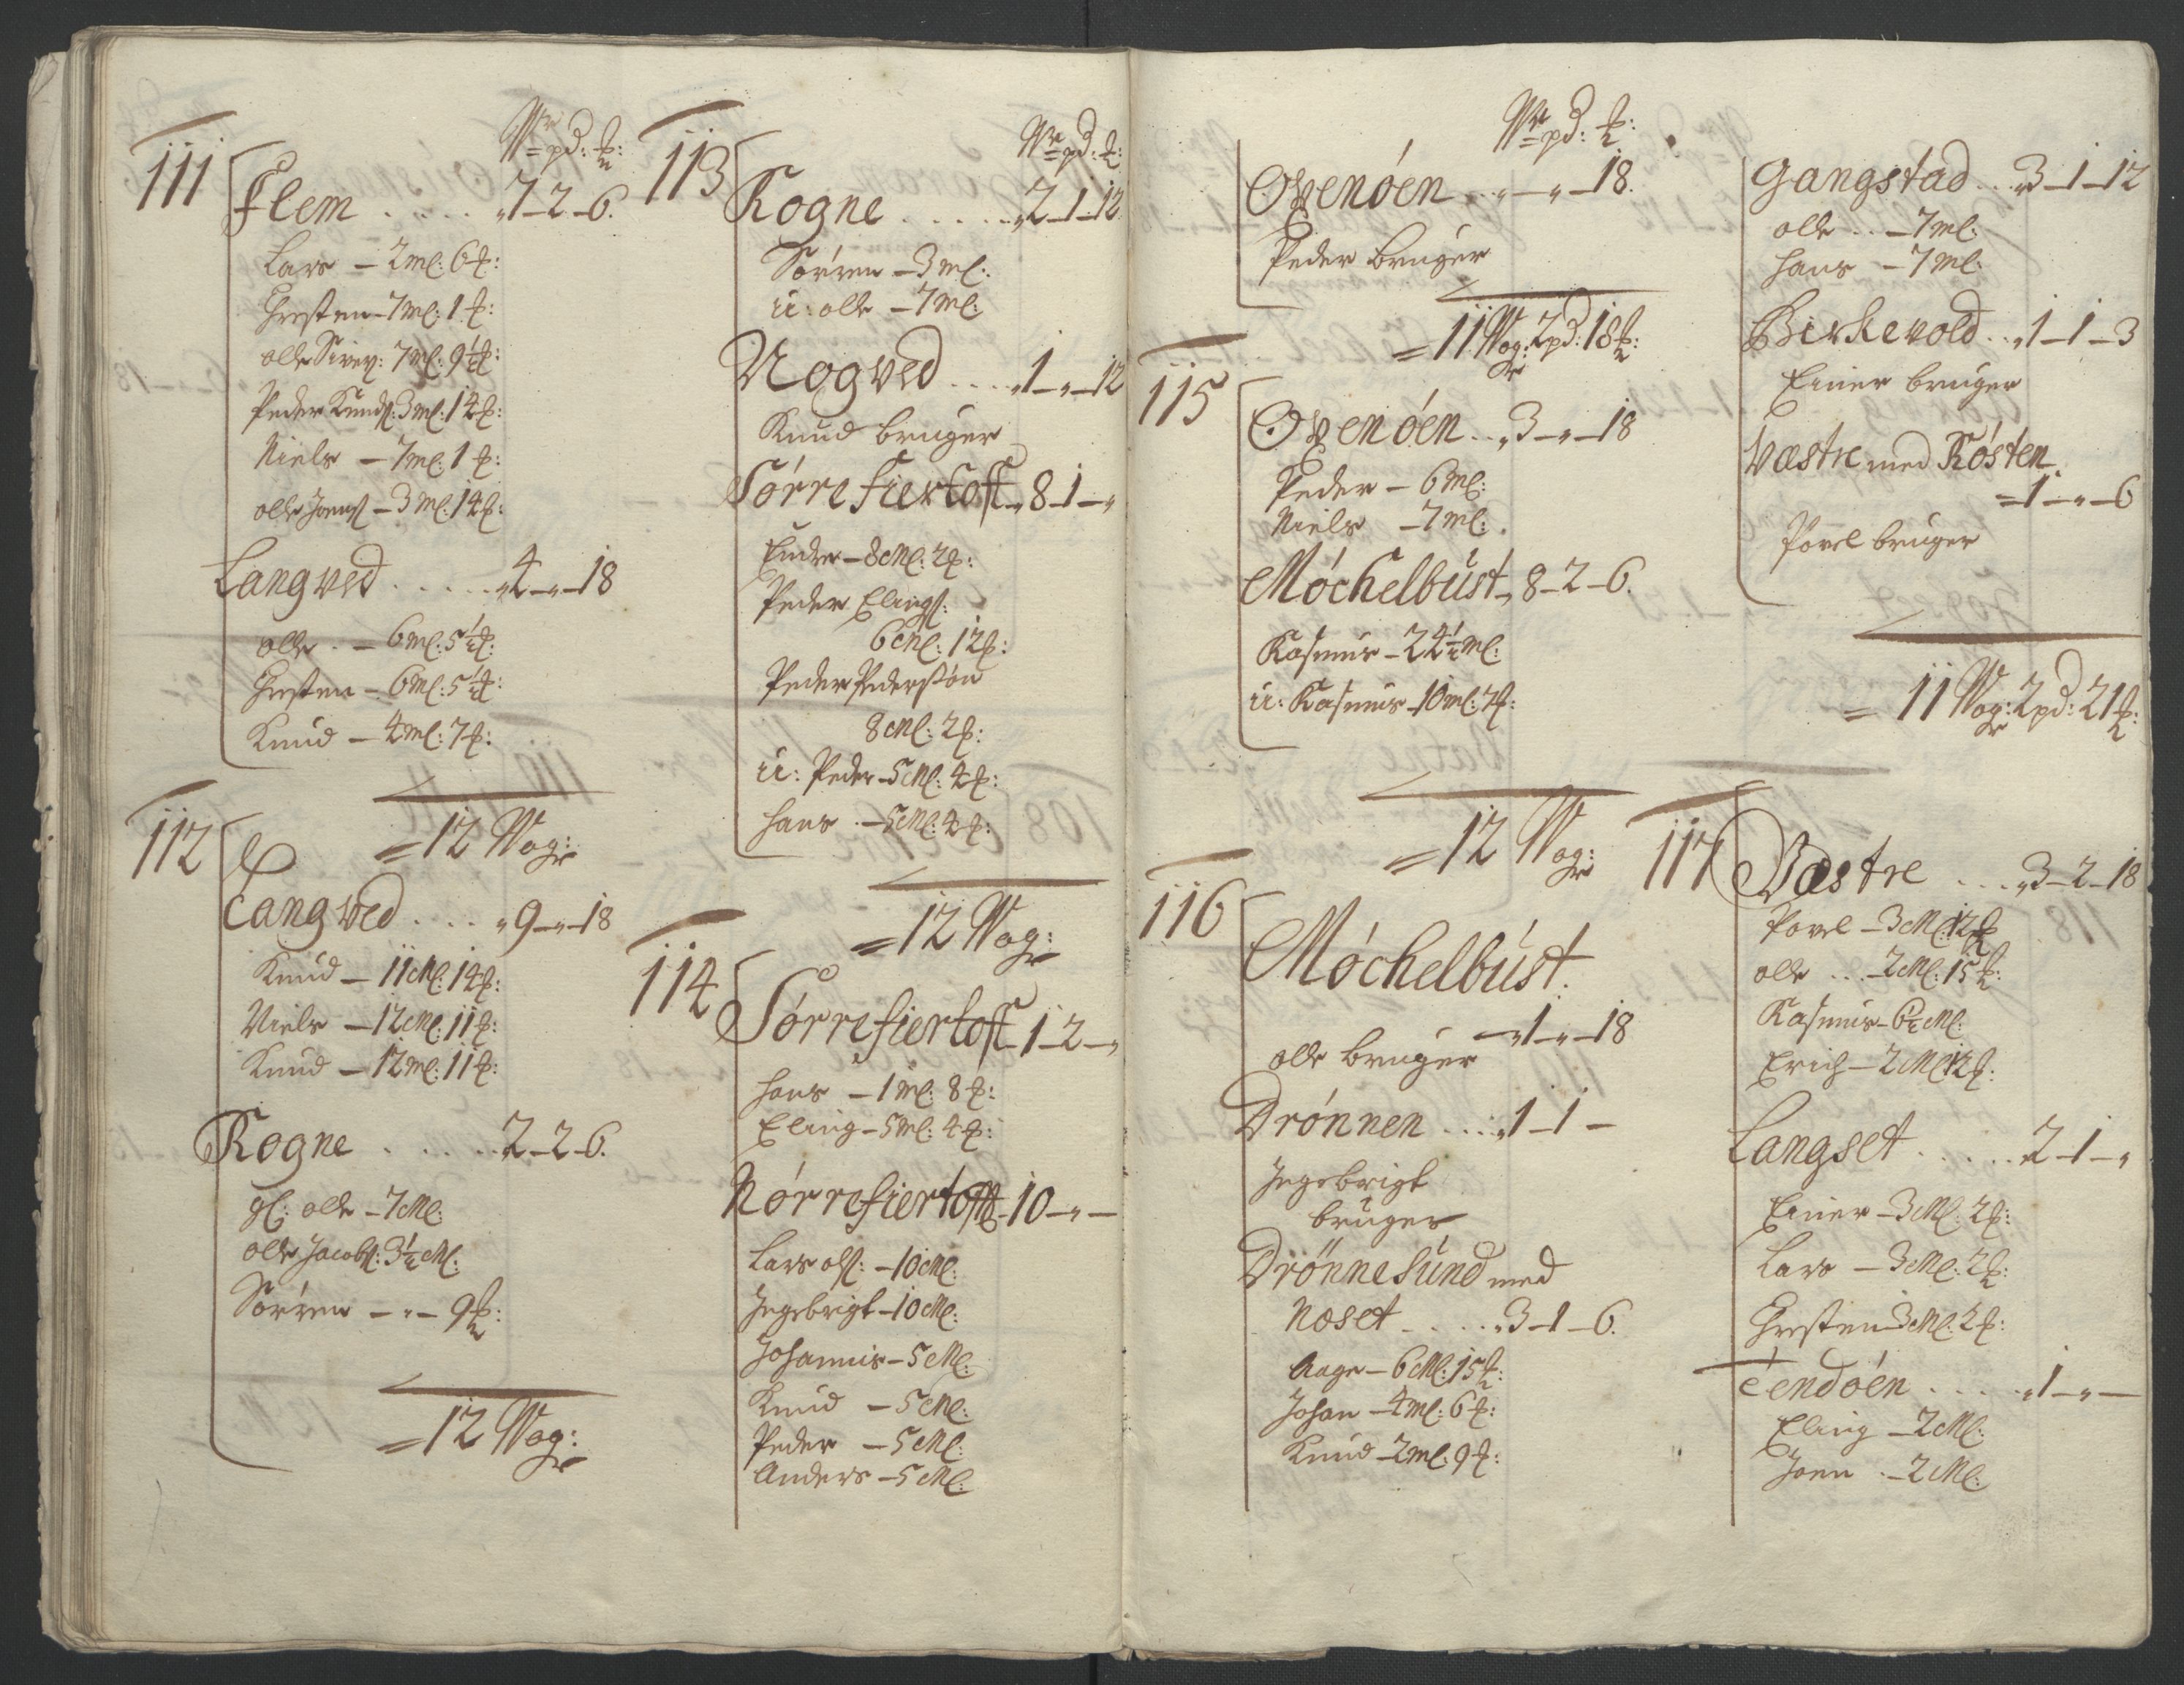 Wr pd: ℔:
111 Flem . . . . . 7–2–6.
Lars – 2 ml: 6 ℔:
Chresten – 7 ml: 1 ℔:
olle Siver: 7 ml: 9½ ℔:
Peder Knuds: 3 ml: 14 ℔:
Niels – 7 ml: 1 ℔:
olle Joens – 3 ml: 14 ℔:
Langved . . . . . 4–"–18
olle . – 6 ml: 5½ ℔:
Chresten – 6 ml: 5½ ℔:
Knud – 4 ml: 7 ℔:
= 12 Wog:
112 Langved . . . . 9–"–18
Knud – 11 Ml: 14 ℔:
Niels – 12 Ml: 11 ℔:
Knud – 12 ml: 11 ℔:
Rogne . . . . . 2–2–6.
gl: olle – 7 Ml:
olle Jacobs: 3½ Ml:
Sörren – " – 9 ℔:
= 12 Wog:
Wr pd: ℔:
113 Rogne . . . . . 2–1–12
Sörren – 3 ml:
u: olle – 7 ml:
Nogved . . . . 1–"–12
Knud bruger
Sórrefiertoft – 8–1–"
Ender – 8 Ml: 2 ℔:
Peder Elings:
6 Ml: 12 ℔:
Peder Pedersøn
8 Ml: 2 ℔:
u: Peder – 5 Ml: 4 ℔:
hans . – 5 Ml: 4 ℔:
= 12 Wog:
114 Sórrefiertoft – 1–2–"
hans – 1 ml: 8 ℔:
Eling – 5 ml: 4 ℔:
Nórrefiertofft – 10–"–
Lars ols: – 10 Ml:
Ingebrigt – 10 Ml:
Johannis – 5 Ml:
Knud – 5 Ml:
Peder – 5 Ml:
Anders – 5 Ml:
Wr pd: ℔:
Oxenóen . . "–"–18.
Peder bruger
= 11 Wog: 2 pd: 18 ℔:
115 Oxenóen . . 3–"–18
Peder – 6 ml:
Niels – 7 ml:
Móchelbúst – 8–2–6.
Rasmus – 24½ ml:
u: Rasmus – 10 ml: 7 ℔:
= 12 Wog:
116 Móchelbúst.
– 1–"–18
olle bruger
Drónnen . . . . 1–1–
Ingebrigt
bruger
Drönnesúnd med
Noset . . . . . 3–1–6.
Aage – 6 Ml: 15 ℔:
Johan – 4 ml: 6 ℔:
Knud – 2 ml: 9 ℔:
Gangstad . . . 3–1–12
olle . . – 7 ml:
hans – 7 ml:
Birkevold . . 1–1–3
Einer bruger
Væstre med Rósten
= 1–"–6
Povel bruger
= 11 Wog: 2 pd: 21 ℔:
117 Væstre . . . . 3–2–18
Povel – 3 Ml: 12 ℔
olle . . – 2 Ml: 15 ℔:
Rasmus – 6½ Ml:
Erich – 2 Ml: 12 ℔:
Langset . . . . . 2–1–"
Einer – 3 Ml: 2 ℔:
Lars – 3 Ml: 2 ℔:
Chresten – 3 Ml: 2 ℔:
Tendóen . . . . . 1–"–
Eling – 2 Ml:
Joen . – 2 Ml: